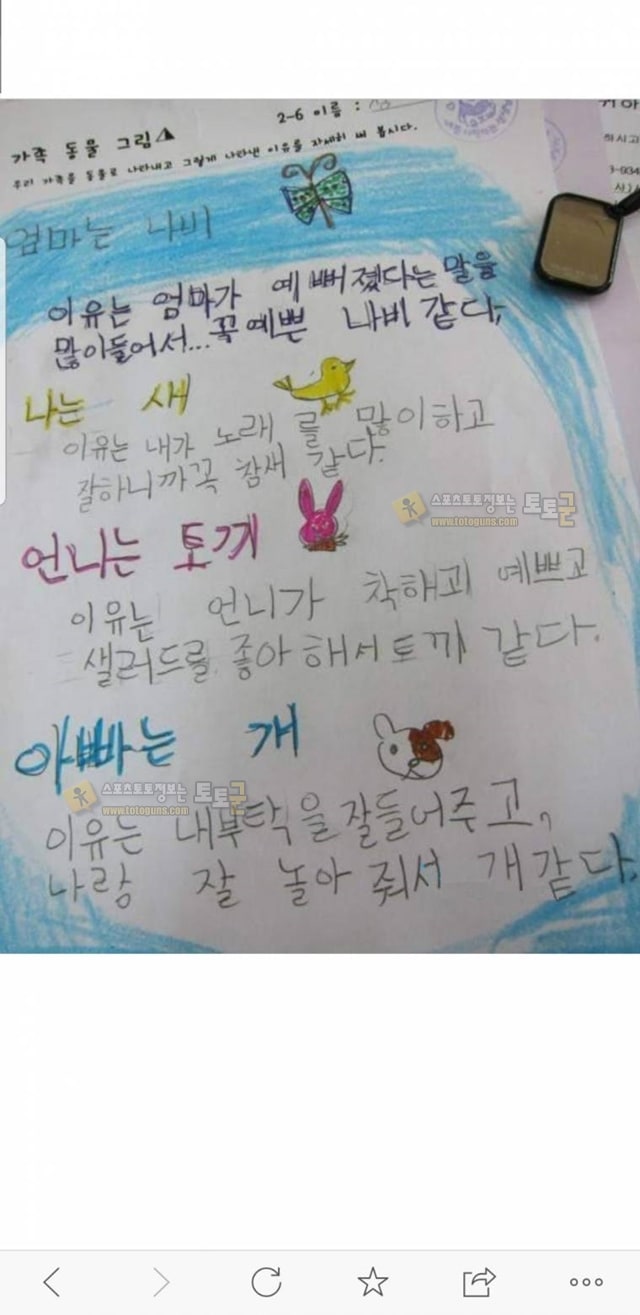 2-6 이름 :
가족 동물 그림
우리 가족을 동물로 나타내고 그렇게 나타낸 이유를 자세히 써 봅시다.
엄마는 나비
이유는 엄마가 예뻐졌다는 말을
많이들어서...꼭 예쁜 나비 같다,
나는 새
이유는 내가 노래를 많이하고
잘하니까꼭 참새 같다.
스포츠토토정보는 토토군
www.totoguns.com
언니는 토끼
이유는 언니가 착해고 예쁘고
샐러드를 좋아해서토끼 같다.
아빠는 개
스포츠토토정보는 토토군
www.totoguns.com
이유는 내부탁을잘들어주고,
나랑 잘 놀아 줘서 개같다.